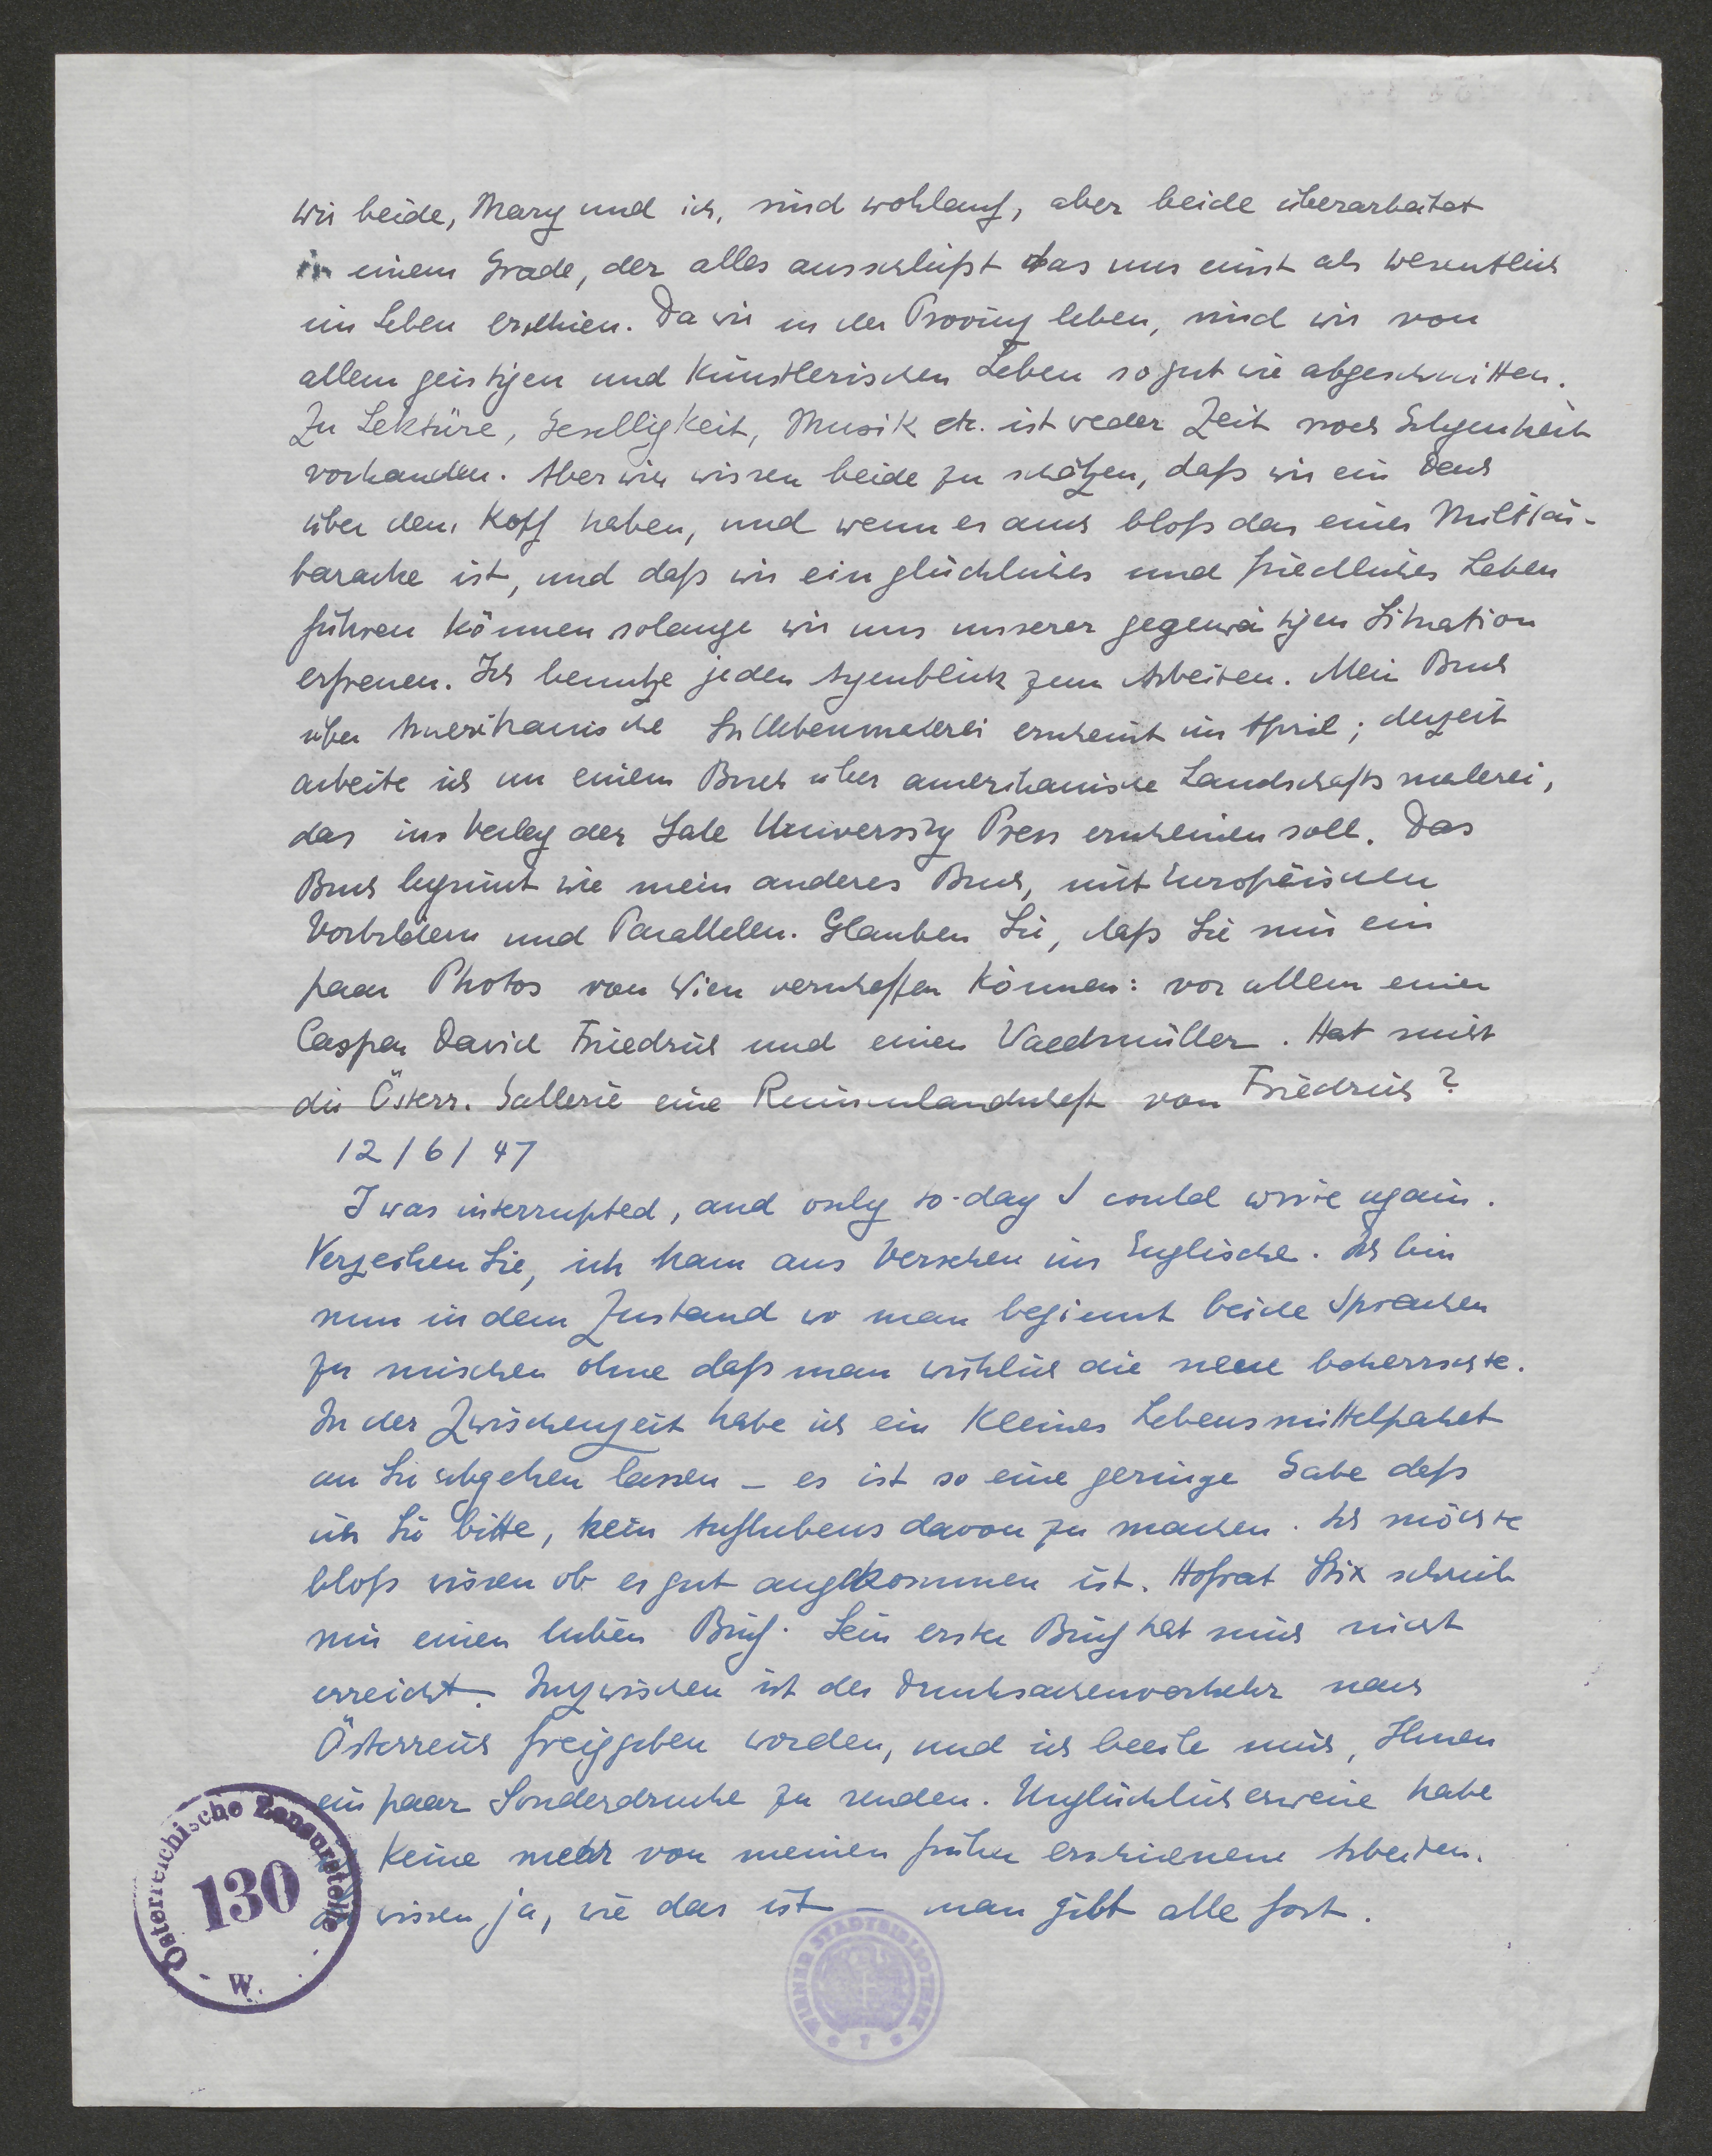 wir beide, Mary und ich, sind wohlauf, aber beide überarbeitet
in einem Grade, der alles ausschließt das uns einst als wesentlich
im Leben erschien. Da wir in der Provinz leben, sind wir von
allem geistigen und künstlerischen Leben so gut wie abgeschnitten.
Zu Lektüre, Geselligkeit, Musik etc. ist weder Zeit noch Gelegenheit
vorhanden. Aber wir wissen beide zu schätzen, daß wir ein Dach
über dem Kopf haben, und wenn es auch bloß das einer Militär-
barache ist, und daß wir ein glückliches und friedliches Leben
führen können solange wir uns unserer gegenwärtigen Situation
erfreuen. Ich benutze jeden Augenblick zum Arbeiten. Mein Buch
über Amerikanische Stillebenmalerei erscheint im April; derzeit
arbeite ich an einem Buch über amerikanische Landschaftsmalerei,
das im Verlag der Yale University Press erscheinen soll. Das
Buch beginnt wie mein anderes Buch, mit Europäischen
Vorbildern und Parallelen. Glauben Sie, daß Sie mir ein
paar Photos von Wien verschaffen können: vor allem einen
Caspar David Friedrich und einen Waldmüller. Hat nicht
die Österr. Gallerie eine Ruinenlandschaft von Friedrich?
12/6/47
I was interrupted, and only to-day I could write again.
Verzeihen Sie, ich kam aus Versehen ins Englische. Ich bin
nun in dem Zustand wo man beginnt beide Sprachen
zu mischen ohne daß man wirklich die neue beherrschte.
In der Zwischenzeit habe ich ein kleines Lebensmittelpaket
an Sie abgehen lassen – es ist so eine geringe Gabe daß
ich Sie bitte, kein Aufhebens davon zu machen. Ich möchte
bloß wissen ob es gut angekommen ist. Hofrat Stix schrieb
mir einen lieben Brief. Sein erster Brief hat mich nicht
erreicht. Inzwischen ist der Drucksachenverkehr nach
Österreich freigegeben worden, und ich beeile mich, Ihnen
ein paar Sonderdrucke zu senden. Unglücklicherweise habe
keine mehr von meinen früher erschienenen Arbeiten.
wissen ja, wie das ist – man gibt alle fort.
Österreichische Zensurstelle
130
W.
WIENER STADTBIBLIOTHEK